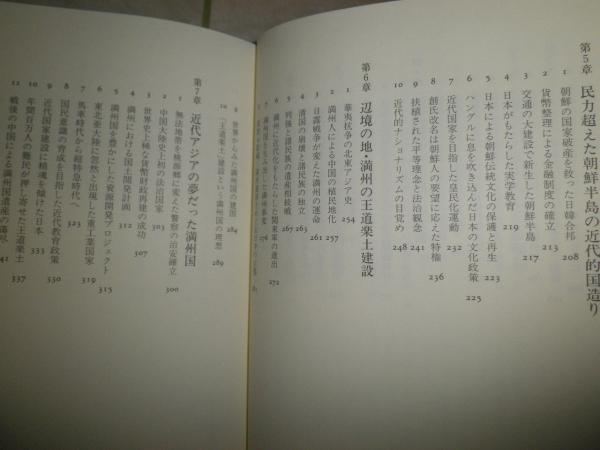 第5章 民力超えた朝鮮半島の近代的国造り
1 朝鮮の国家破産を救った日韓合邦 208
2 貨幣整理による金融制度の確立 213
3 交通の大建設で新生した朝鮮半島 217
4 日本がもたらした実学教育 219
5 日本による朝鮮伝統文化の保護と再生 223
6 ハングルに息を吹き込んだ日本の文化政策 225
7 近代国家を目指した皇民化運動 232
8 創氏改名は朝鮮人の要望に応えた特権 236
9 扶植された平等理念と法治観念 241
10 近代的ナショナリズムの目覚め 248
第6章 辺境の地・満州の王道楽土建設
1 華夷抗争の北東アジア史 254
2 満州人による中国の植民地化 257
3 日露戦争が変えた満州の運命 261
4 清国の崩壊と諸民族の独立 263
5 列強と諸民族の遺産相続戦 267
6 満州に近代化をもたらした関東軍の進出 272
7 276
9 世界からみた満州国の建国 284
10 「王道楽土」建設という満州国の理想 289
第7章 近代アジアの夢だった満州国
1 無法地帯を桃源郷に変えた警察の治安確立
2 中国大陸史上初の法治国家 300
3 世界史上稀な貨幣財政再建の成功 303
4 満州における国土開発計画 307
5 満州国を豊かにした資源開発プロジェクト 312
6 東北亜大陸に忽然と出現した重工業国家 315
7 馬車時代から超特急時代へ 323
8 国民意識の育成を目指した近代教育政策 319
9 近代国家建設に精魂を傾けた日本 330
10 年間百万人の難民が押し寄せた王道楽土 333
11 戦後の中国による満州国遺産の蕩尽 337